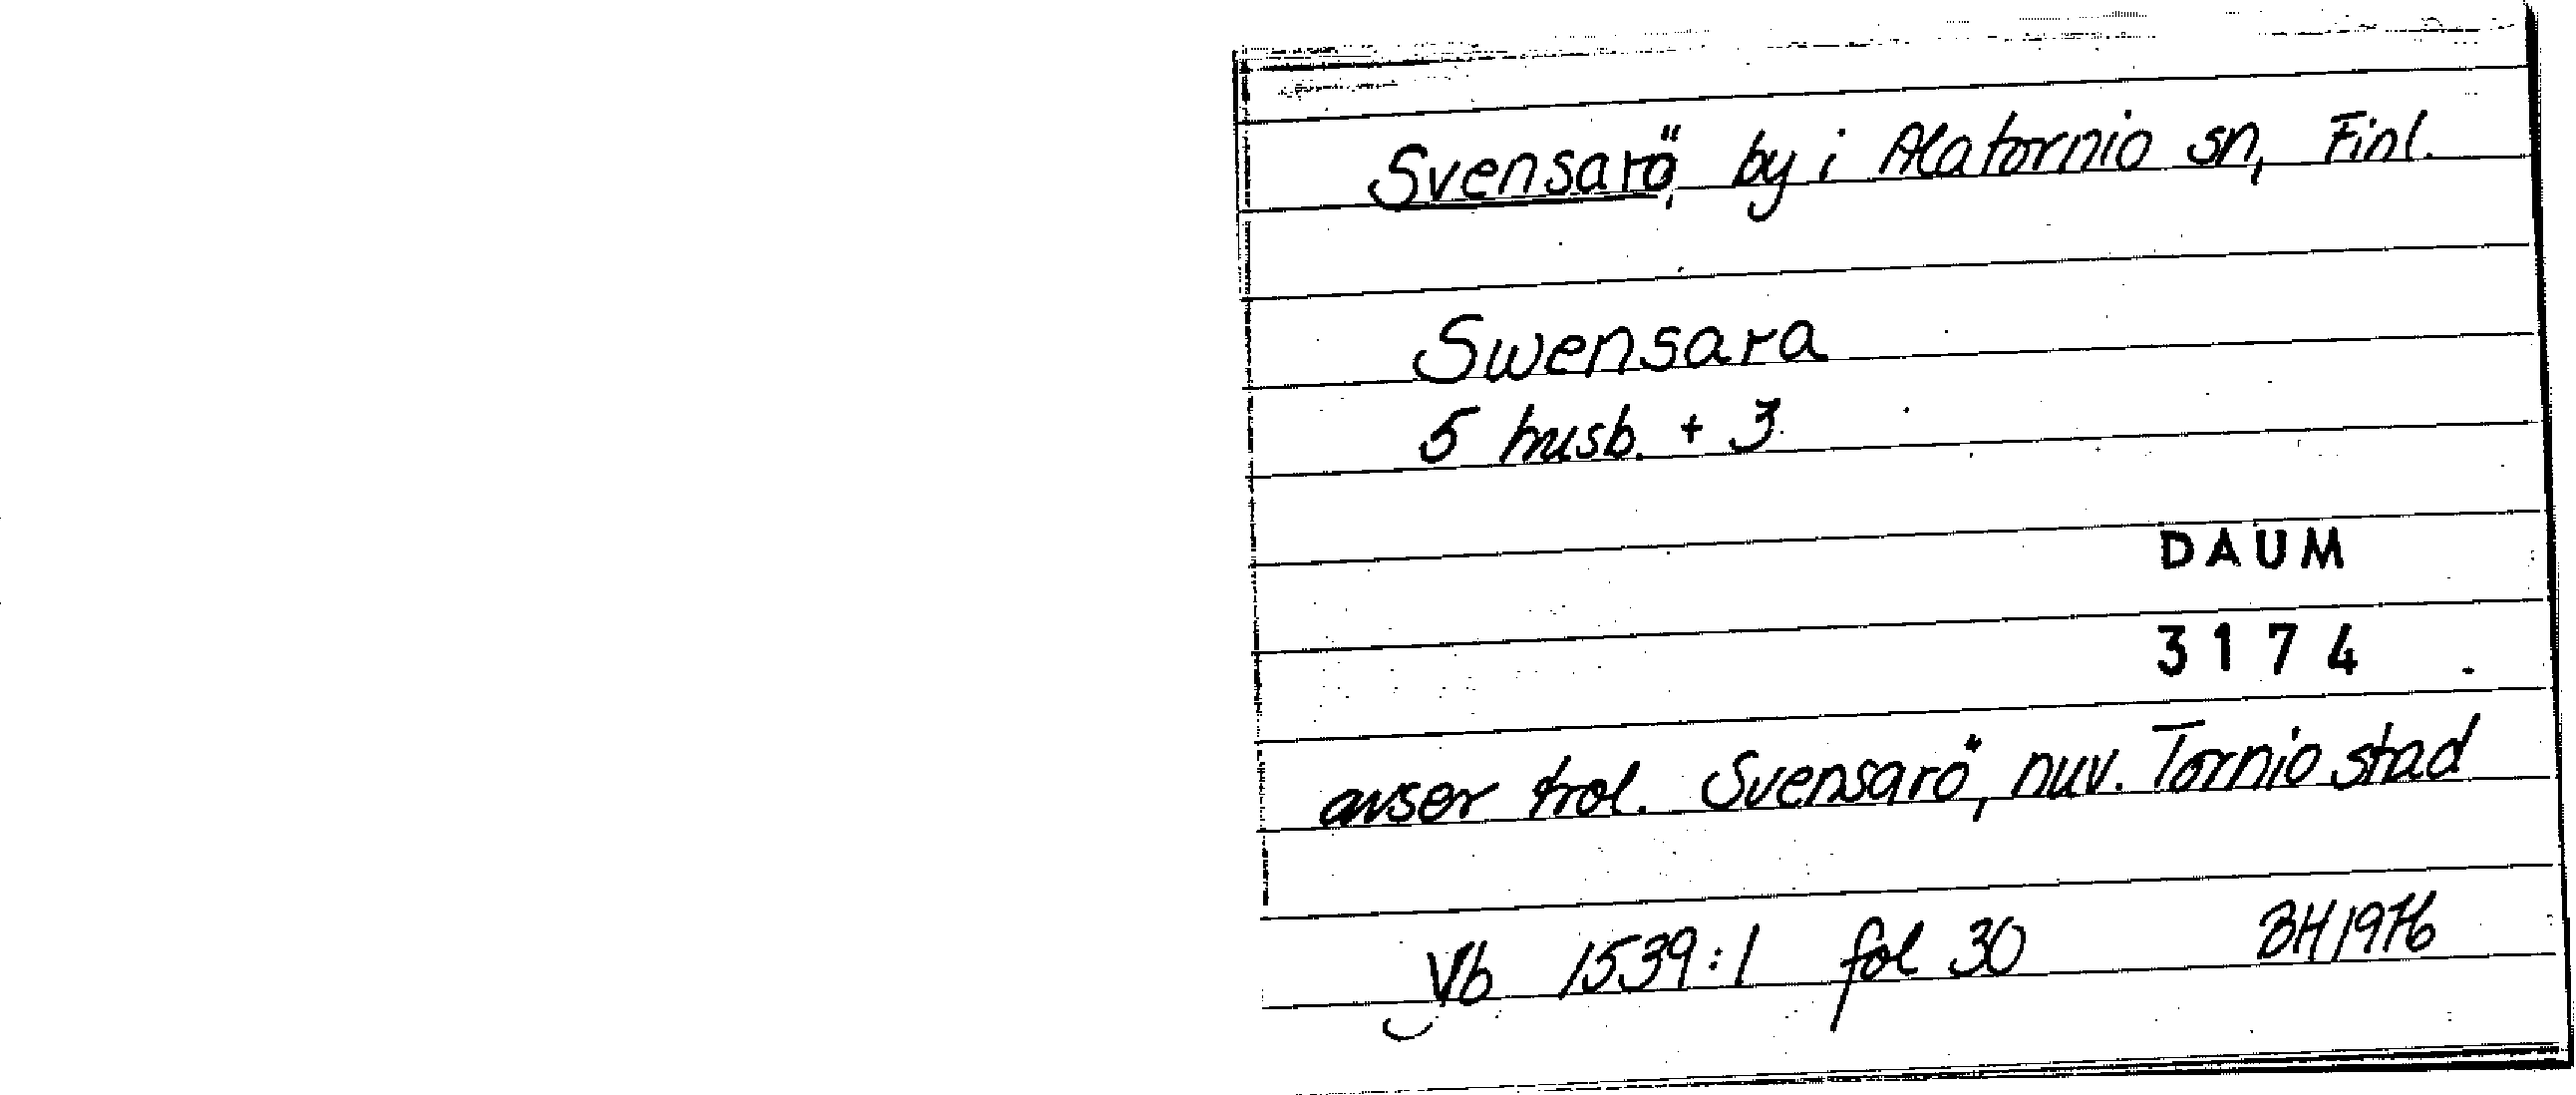 Svensarö, by i Alatornio sn, Finl.
Swensara
5 husb. + 3
DAUM
3174
avser trol. Svensarö, nuv. Tornio stad
Vb 1539:1 fol 30 BH 1976